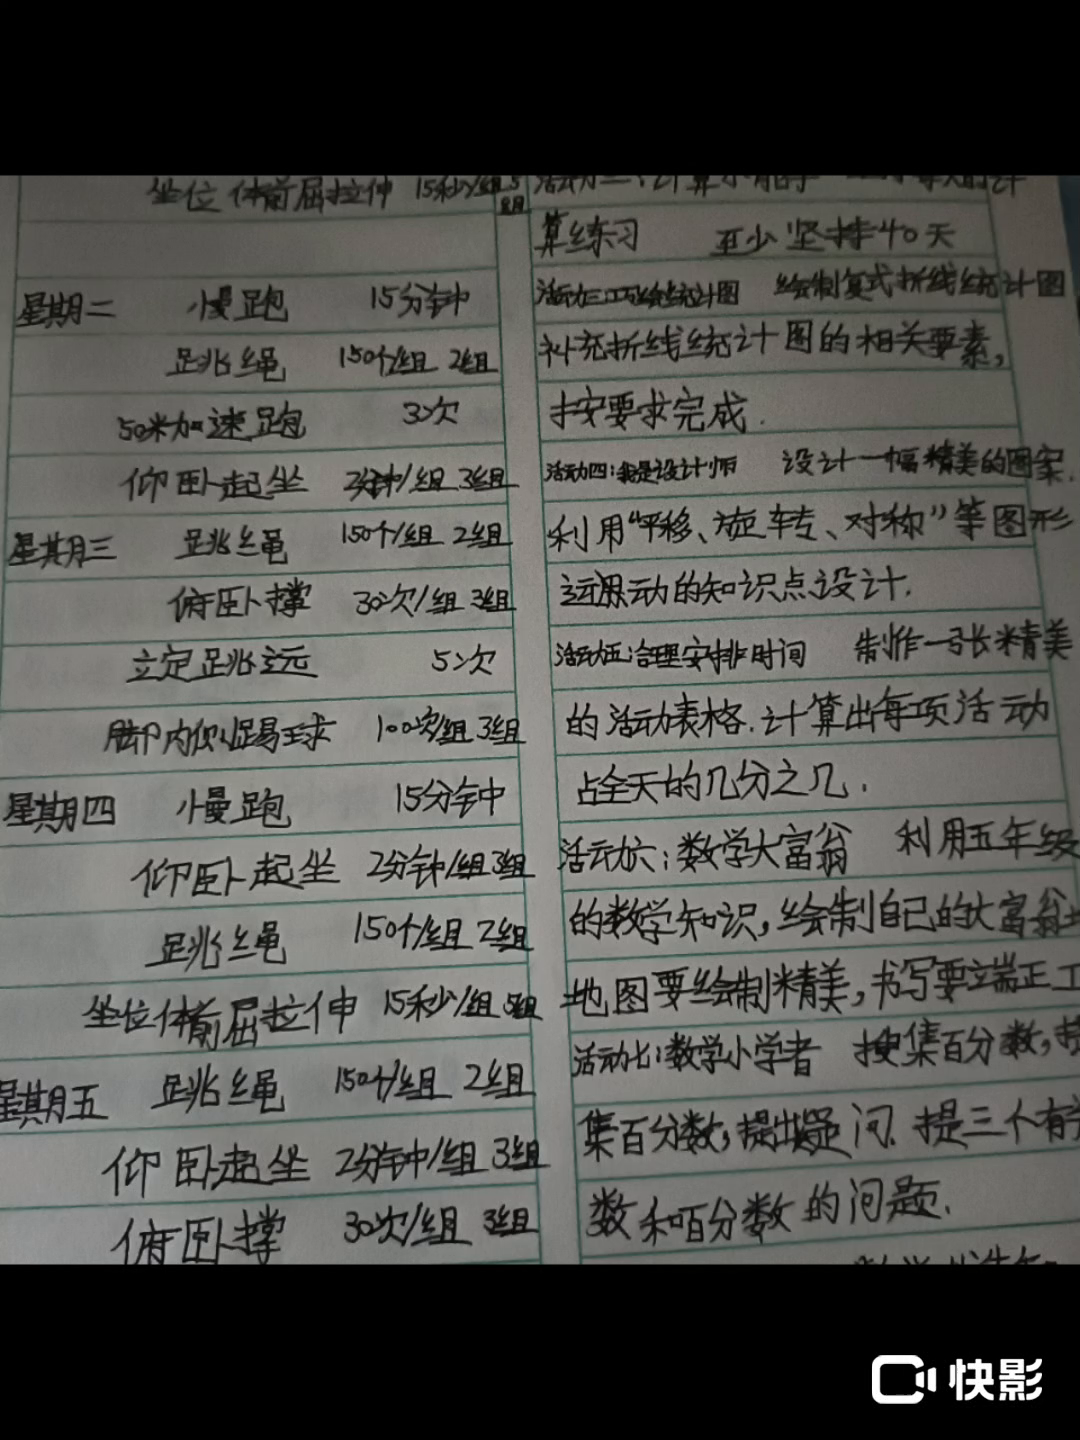 坐位体前屈拉伸 15秒/组 5组
星期二 慢跑 15分钟
跳绳 150个/组 2组
50米加速跑 3次
仰卧起坐 2分钟/组 3组
星期三 跳绳 150个/组 2组
俯卧撑 30次/组 3组
立定跳远 5次
脚内侧踢球 100次/组 3组
星期四 慢跑 15分钟
仰卧起坐 2分钟/组 3组
跳绳 150个/组 2组
坐位体前屈拉伸 15秒/组
星期五 跳绳 150个/组 2组
仰卧起坐 2分钟/组 3组
俯卧撑 30次/组 3组
算练习 至少坚持40天
活动三:巧绘统计图 绘制复式折线统计图
补充折线统计图的相关要素,
按要求完成.
活动四:我是设计师 设计一幅精美的图案.
利用“平移、旋转、对称”等图形
运动的知识点设计.
活动五:合理安排时间 制作一张精美
的活动表格.计算出每项活动
占全天的几分之几.
活动六:数学大富翁 利用五年级
的数学知识,绘制自己的大富翁
地图要绘制精美,书写要端正工
活动七:数学小学者 搜集百分数,
集百分数,提出疑问.提三个有
数和百分数的问题.
快影